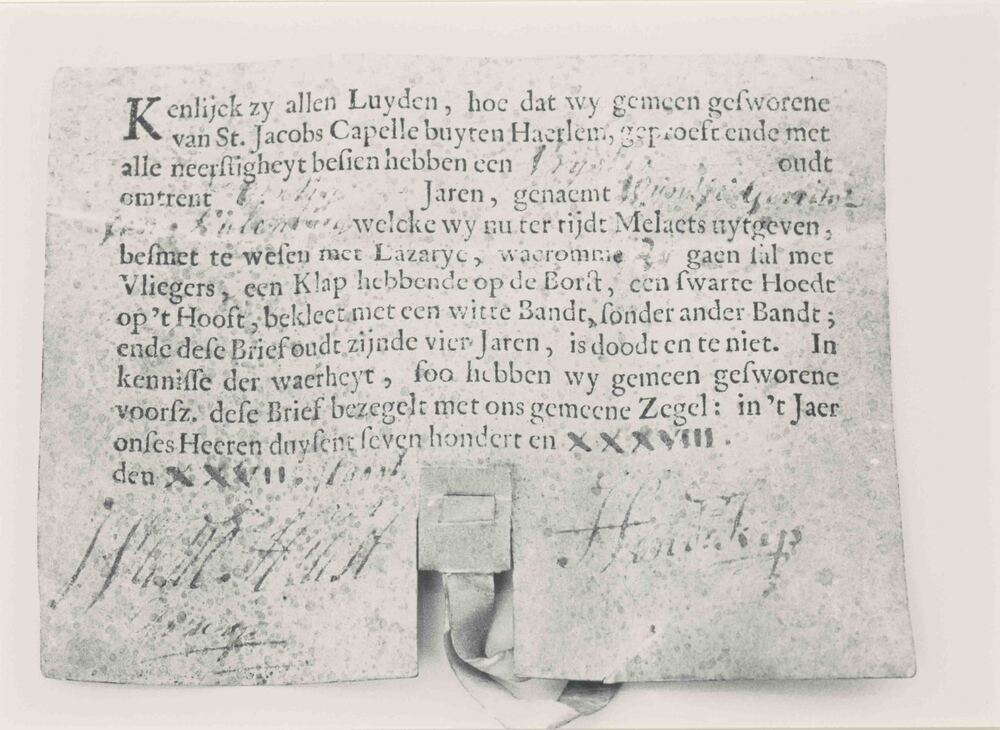 Kenlijck zy allen Luyden, hoe dat wy gemeen gesworene
van St. Jacobs Capelle buyten Haerlem, geproeft ende met
alle neerstigheyt besien hebben een oudt
omtrent Jaren, genaemt
welcke wy nu ter tijdt Melaets uytgeven,
besmet te wesen met Lazarye, waeromme gaen sal met
Vliegers, een Klap hebbende op de Borst, een swarte Hoedt
op 't Hooft, bekleet met een witte Bandt, sonder ander Bandt;
ende dese Brief oudt zijnde vier Jaren, is doodt en te niet. In
kennisse der waerheyt, soo hebben wy gemeen gesworene
voorsz. dese Brief bezegelt met ons gemeene Zegel: in 't Jaer
onses Heeren duysent seven hondert en XXXVIII.
den XXVII.